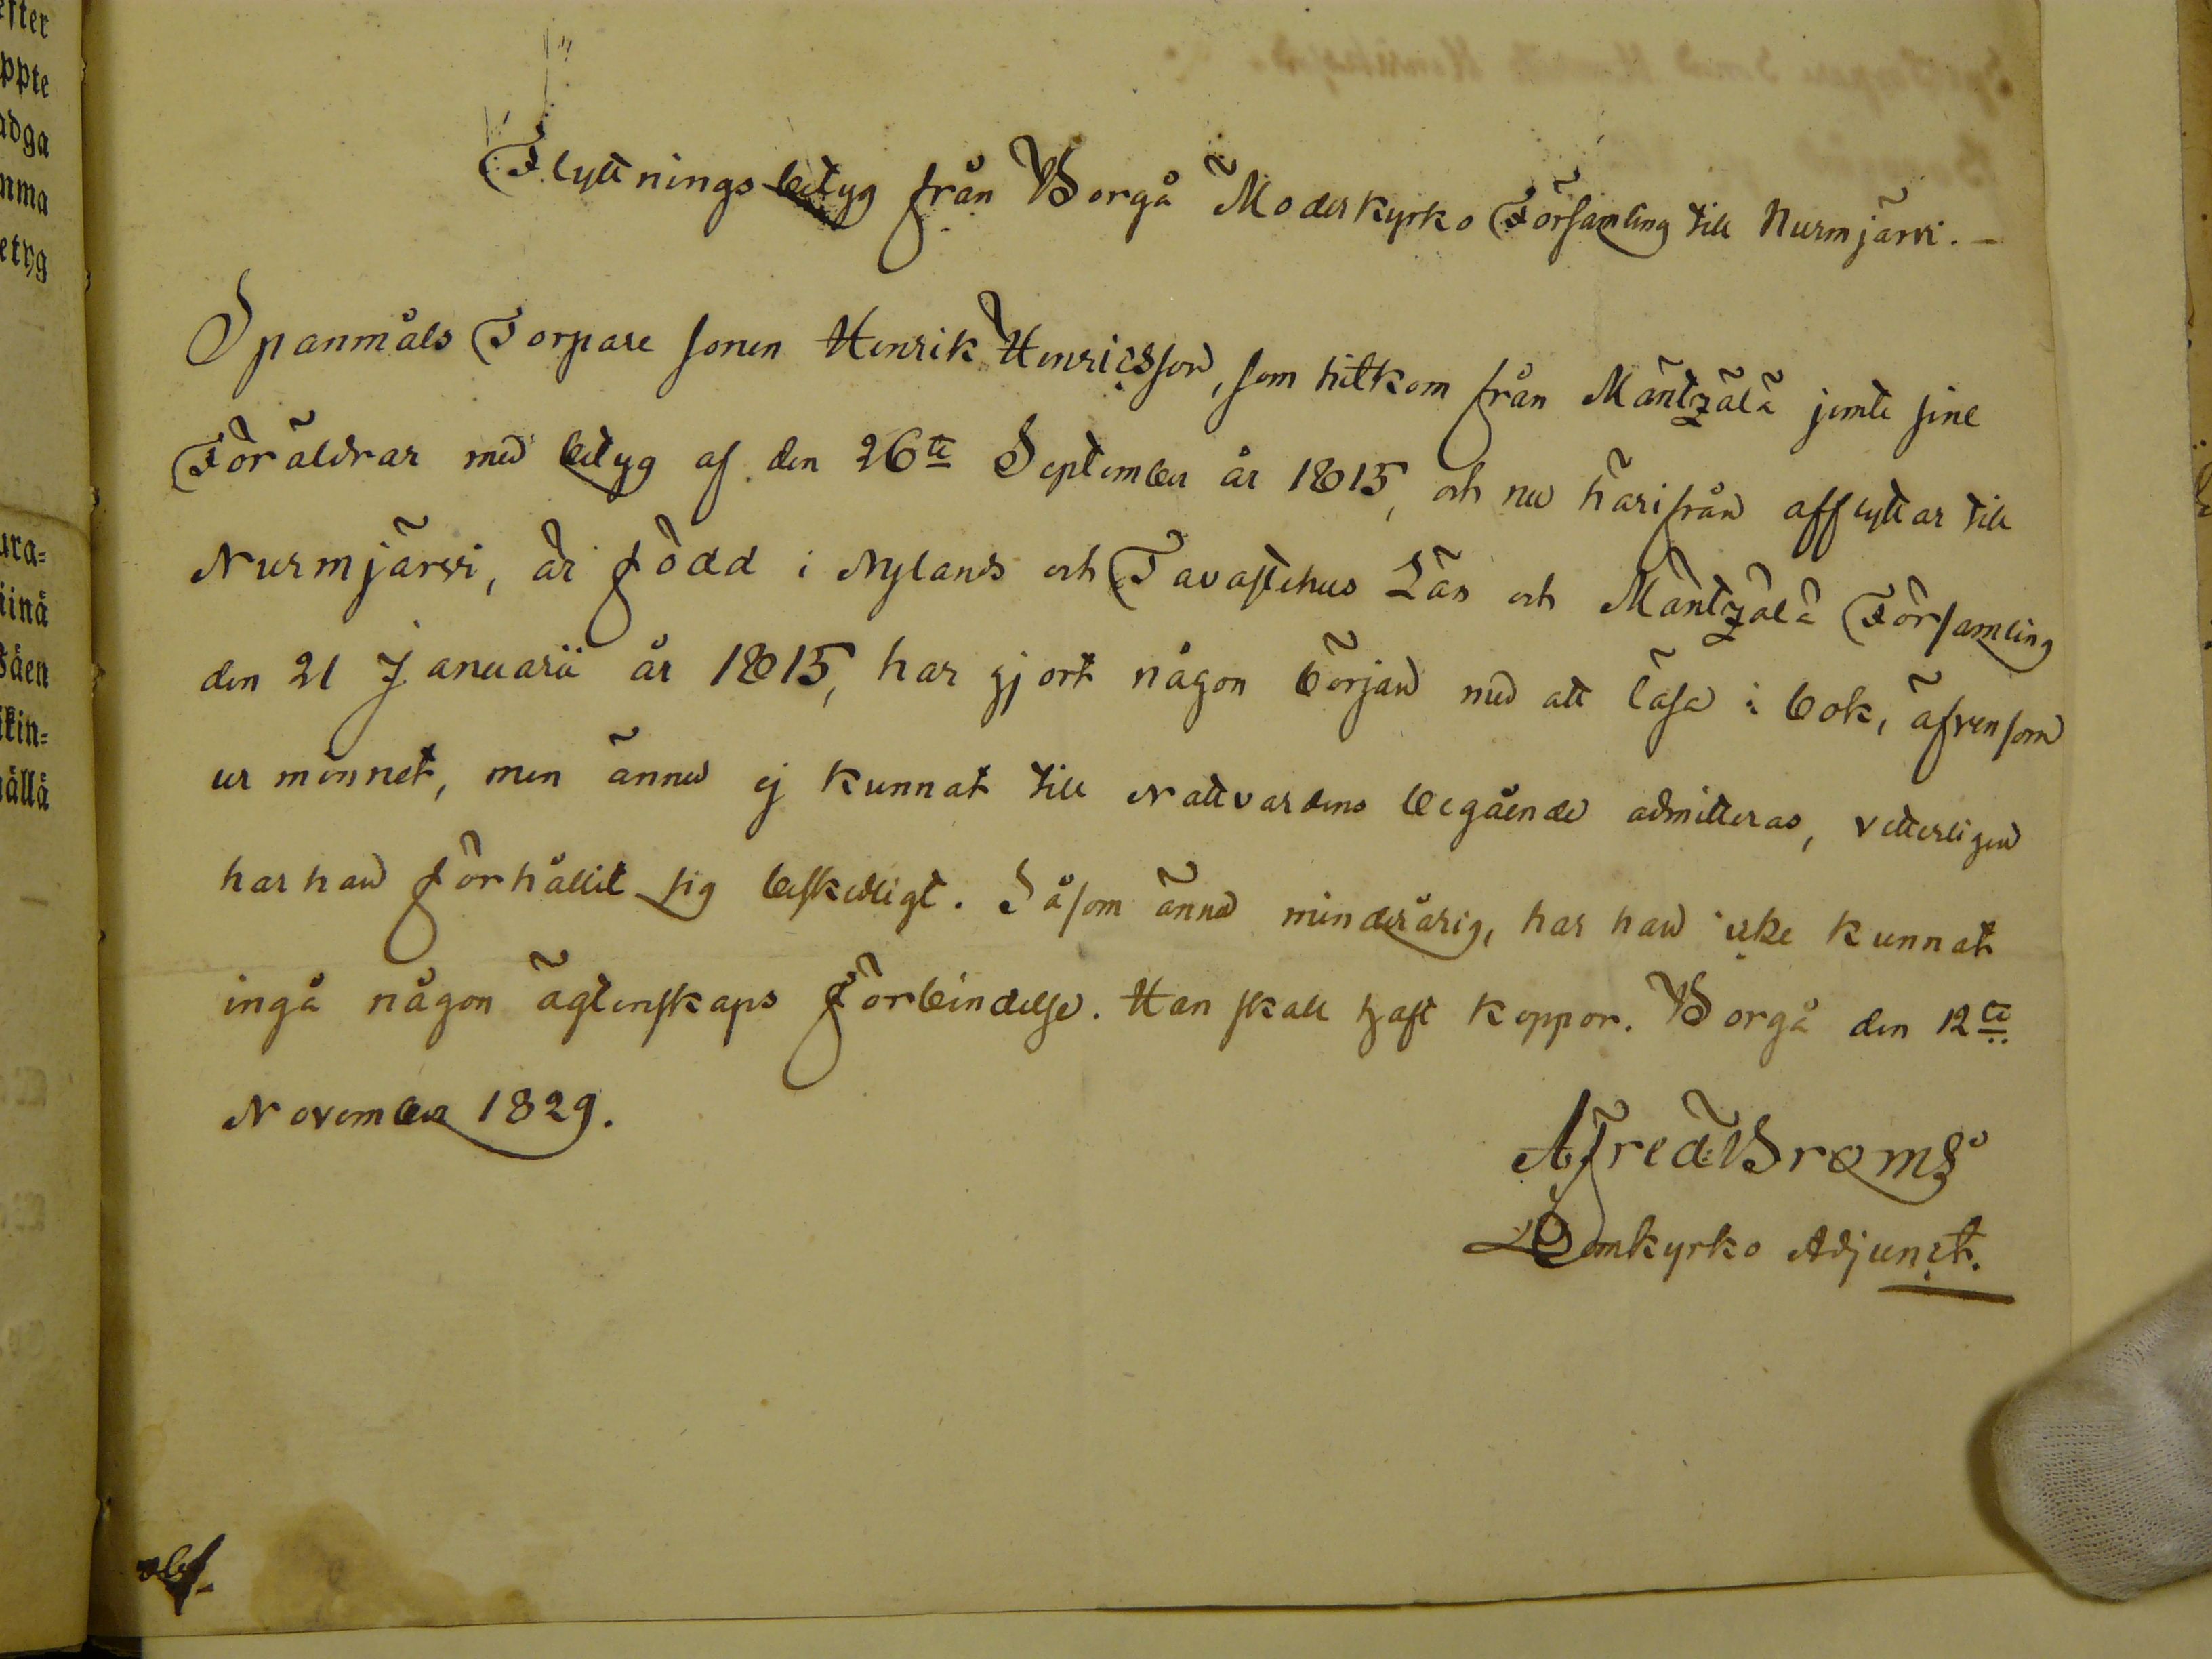 Flyttningsbetyg från Borgå Moderkyrko Församling till Nurmjärvi. –
Spanmåls Torpare sonen Henrik Henricsson, som hitkom från Mäntzälä jemte sine
Föräldrar med betyg af den 26te September år 1815, och nu härifrån afflyttar till
Nurmjärvi, är född i Nylands och Tavastehus Län och Mäntzälä Församling
den 21 Januarii år 1815, har gjort någon början med att läsa i bok, äfvensom
ur minnet, men ännu ej kunnat till Nattvardens begående admitteras, vetterligen
har han förhållit sig beskedligt. Såsom ännu minderårig, har han icke kunnat
ingå någon ägtenskaps förbindelse. Han skall haft koppor. Borgå den 12te
November 1829.
Afred: Broms
Domkyrko Adjunct.
efter
ppte
adga
mma
etyg
ura=
iinä
Säen
ikin=
ällä